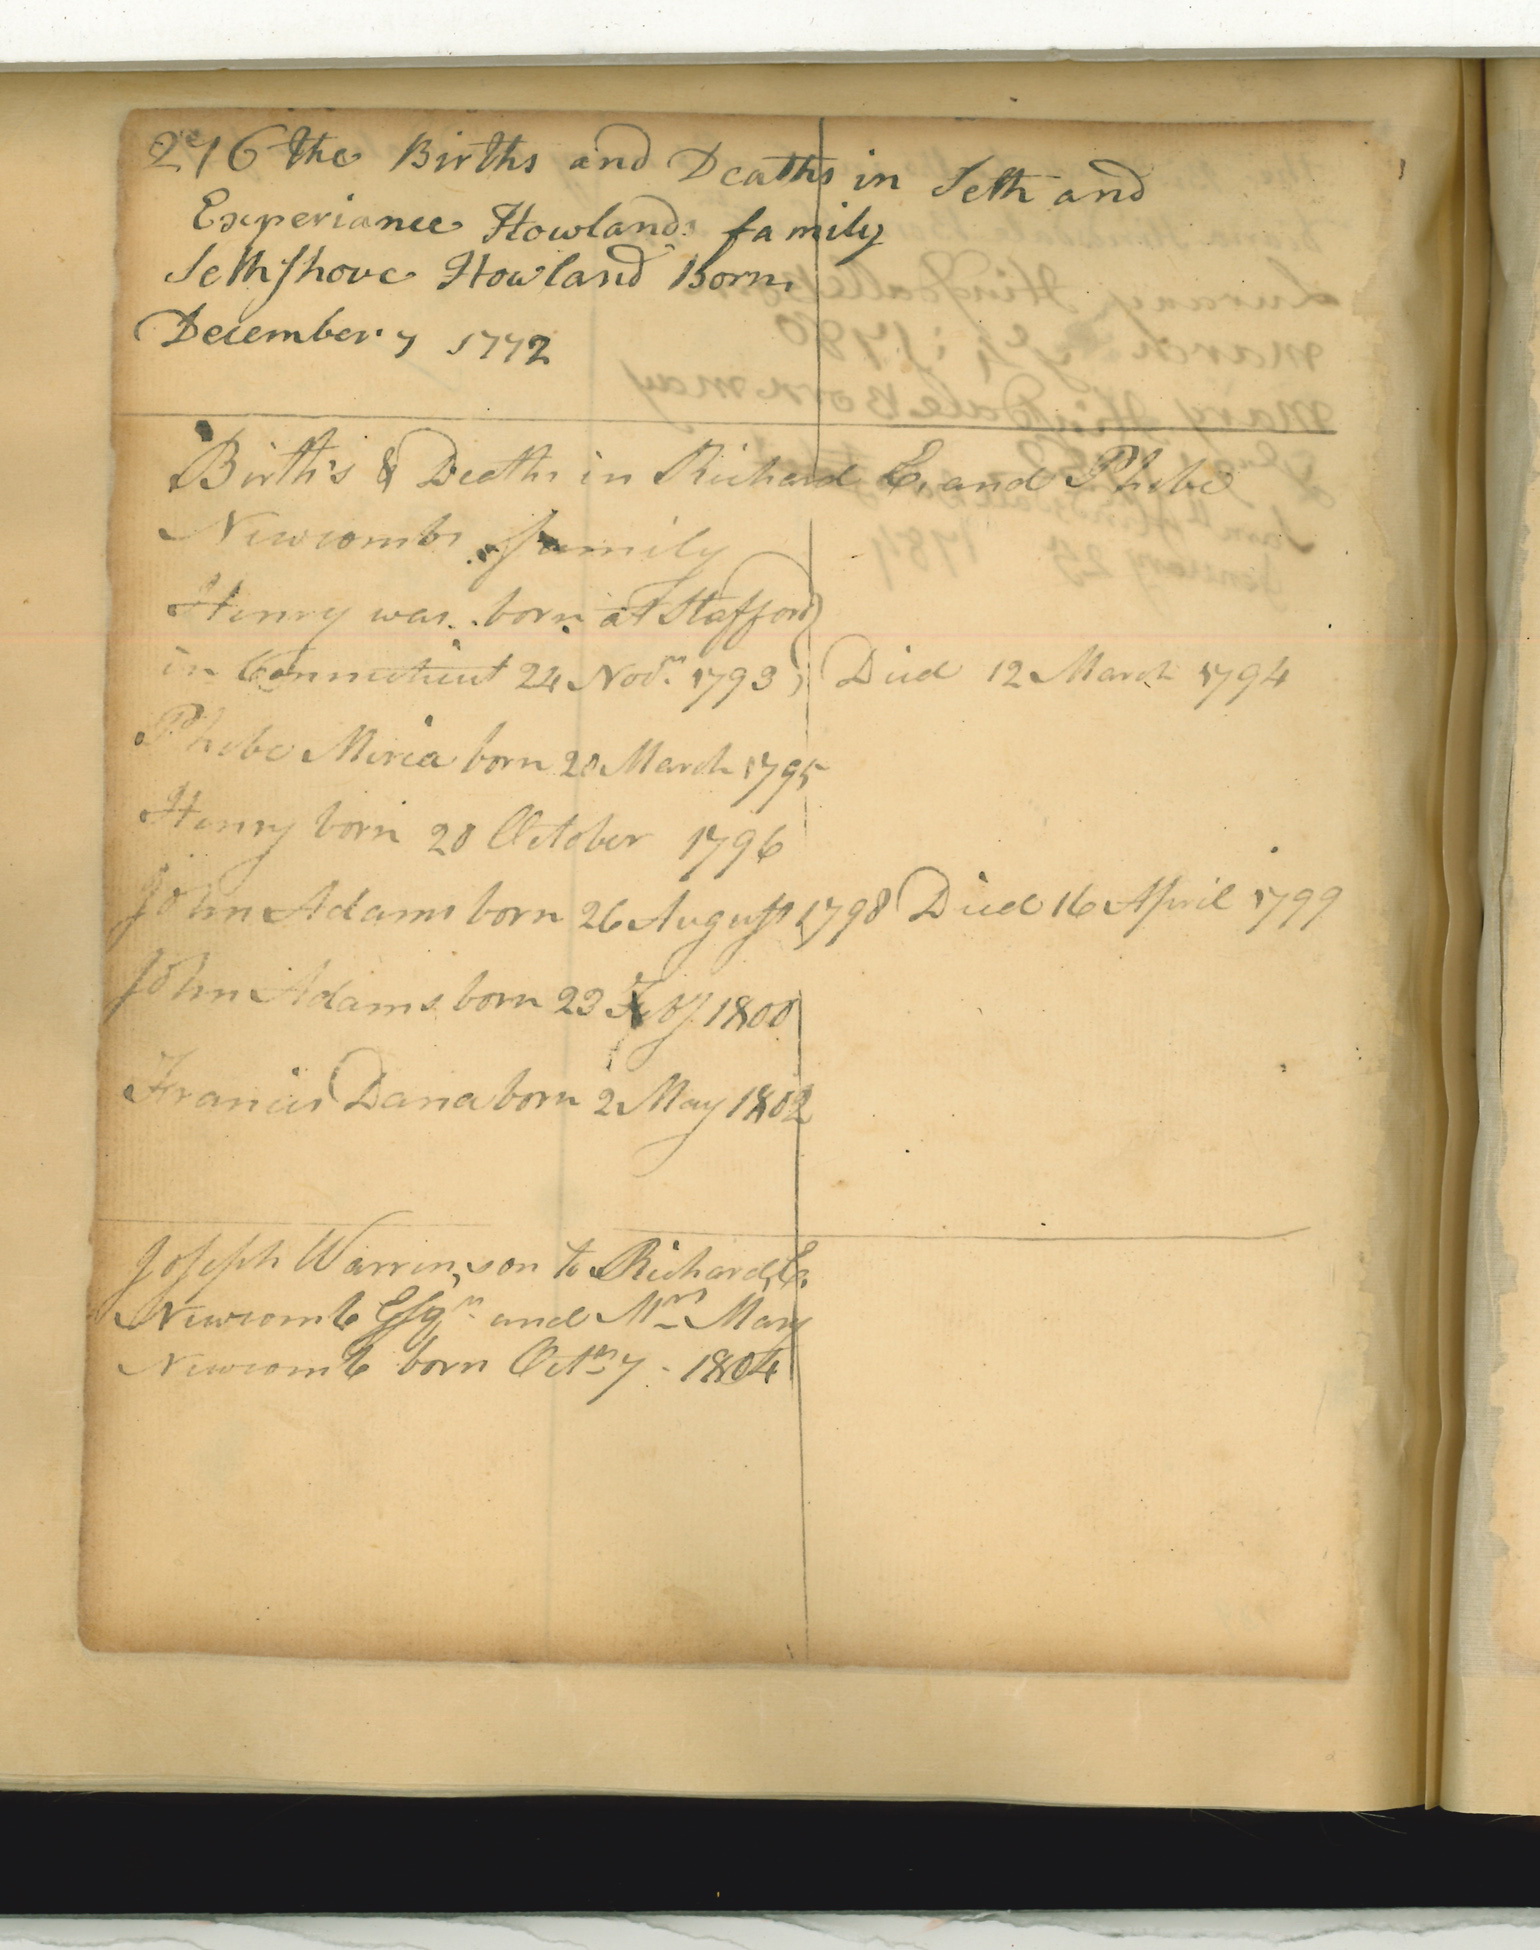 276 the Births and Deaths in Seth and
Experiance Howlands family
Seth Shove Howland Born
December 7 1772
Births & Deaths in Richard E. and Phebe
Newcombs family
Henry was born at Stafford
in Connecticut 24 Novm. 1793 Died 12 March 1794
Phebe Miria born 20 March 1795
Henry born 20 October 1796
John Adams born 26 August 1798 Died 16 April 1799
John Adams born 23 Feby 1800
Francis Dana born 2 May 1802
Joseph Warrin, son to Richard E.
Newcomb Esqr. and Mrs Mary
Newcomb born Octr 7 - 1804